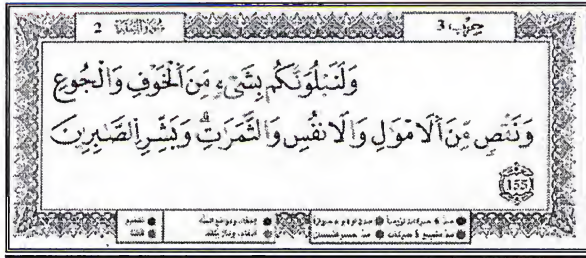 سُورَةُ البَقَرَةِ 2
حِزْب 3
وَلَنَبْلُوَنَّكُم بِشَىْءٍ مِّنَ ٱلْخَوْفِ وَٱلْجُوعِ
وَنَقْصٍ مِّنَ ٱلْأَمْوَٰلِ وَٱلْأَنفُسِ وَٱلثَّمَرَٰتِ ۗ وَبَشِّرِ ٱلصَّٰبِرِينَ
155